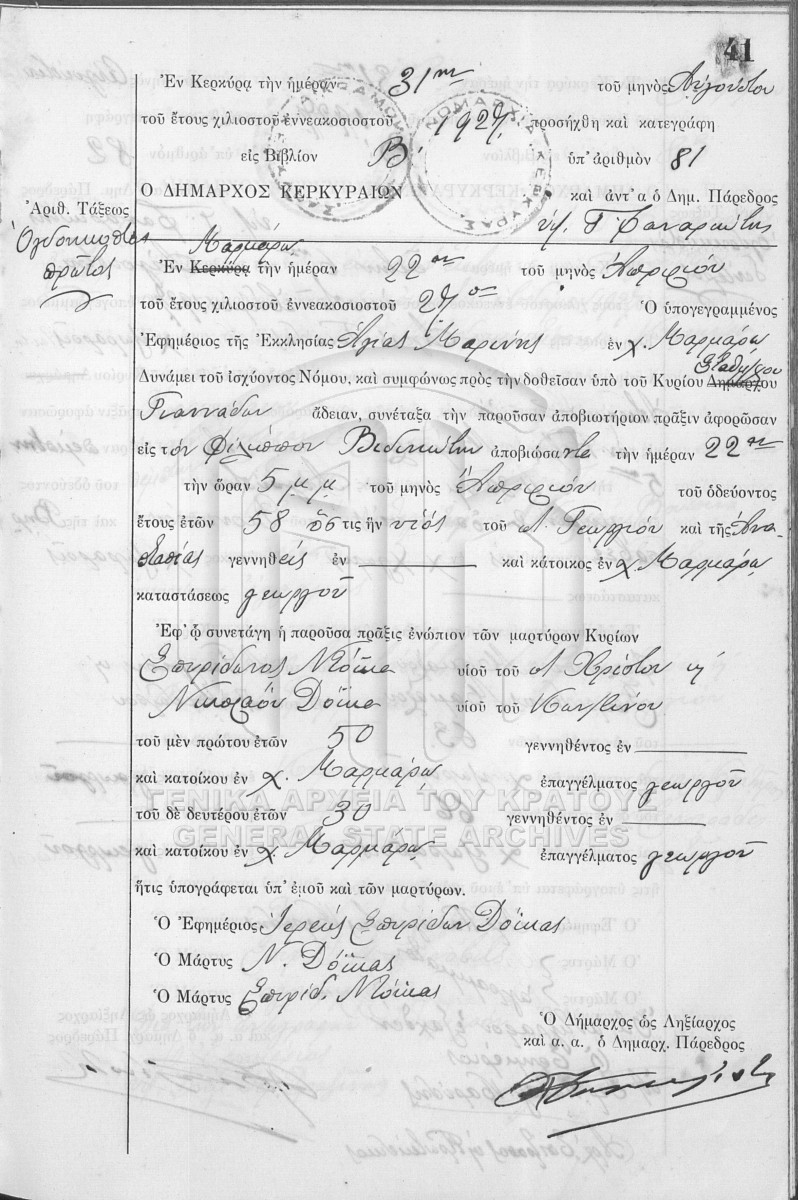 41
Ἐν Κερκύρᾳ τὴν ἡμέραν 31ην τοῦ μηνὸς Αὐγούστου
τοῦ ἔτους χιλιοστοῦ ἐννεακοσιοστοῦ 1927, προσήχθη καὶ κατεγράφη
εἰς Βιβλίον Β. ὑπ' ἀριθμὸν 81
Ο ΔΗΜΑΡΧΟΣ ΚΕΡΚΥΡΑΙΩΝ καὶ ἀντ' α ὁ Δημ. Πάρεδρος
Ἀριθ. Τάξεως
Ὀγδοηκοστὸς
πρῶτος
Μαρμάρω
Ἐν Κερκύρᾳ τὴν ἡμέραν 22αν τοῦ μηνὸς Ἀπριλίου
τοῦ ἔτους χιλιοστοῦ ἐννεακοσιοστοῦ 27ου Ὁ ὑπογεγραμμένος
Ἐφημέριος τῆς Ἐκκλησίας Ἁγίας Μαρίνης ἐν χ. Μαρμάρω
Δυνάμει τοῦ ἰσχύοντος Νόμου, καὶ συμφώνως πρὸς τὴν δοθεῖσαν ὑπὸ τοῦ Κυρίου Δημάρχου Σταθμάρχου
Γιαννάδων ἄδειαν, συνέταξα τὴν παροῦσαν ἀποβιωτήριον πρᾶξιν ἀφορῶσαν
εἰς τὸν Φίλιππον ἀποβιώσαντα τὴν ἡμέραν 22αν
τὴν ὥραν 5 μ.μ. τοῦ μηνὸς Ἀπριλίου τοῦ ὁδεύοντος
ἔτους ἐτῶν 58 ὅστις ἦν υἱὸς τοῦ Γεωργίου καὶ τῆς Ἀνα-
στασίας γεννηθεὶς ἐν καὶ κάτοικος ἐν χ. Μαρμάρω
καταστάσεως γεωργοῦ
Ἐφ' ᾧ συνετάγη ἡ παροῦσα πρᾶξις ἐνώπιον τῶν μαρτύρων Κυρίων
Σπυρίδωνος Ντόϊκα υἱοῦ τοῦ Χρίστου ἢ
Νικολάου Δόϊκα υἱοῦ τοῦ Κων/τίνου
τοῦ μὲν πρώτου ἐτῶν 50 γεννηθέντος ἐν
καὶ κατοίκου ἐν χ. Μαρμάρω ἐπαγγέλματος γεωργοῦ
τοῦ δὲ δευτέρου ἐτῶν 30 γεννηθέντος ἐν
καὶ κατοίκου ἐν χ. Μαρμάρω ἐπαγγέλματος γεωργοῦ
ἥτις ὑπογράφεται ὑπ' ἐμοῦ καὶ τῶν μαρτύρων.
Ὁ Ἐφημέριος Ἱερεὺς Σπυρίδων Δόϊκας
Ὁ Μάρτυς Ν. Δόϊκας
Ὁ Μάρτυς Σπυρίδ. Ντόϊκας
Ὁ Δήμαρχος ὡς Ληξίαρχος
καὶ α. α. ὁ Δημαρχ. Πάρεδρος
ΓΕΝΙΚΑ ΑΡΧΕΙΑ ΤΟΥ ΚΡΑΤΟΥΣ
GENERAL STATE ARCHIVES